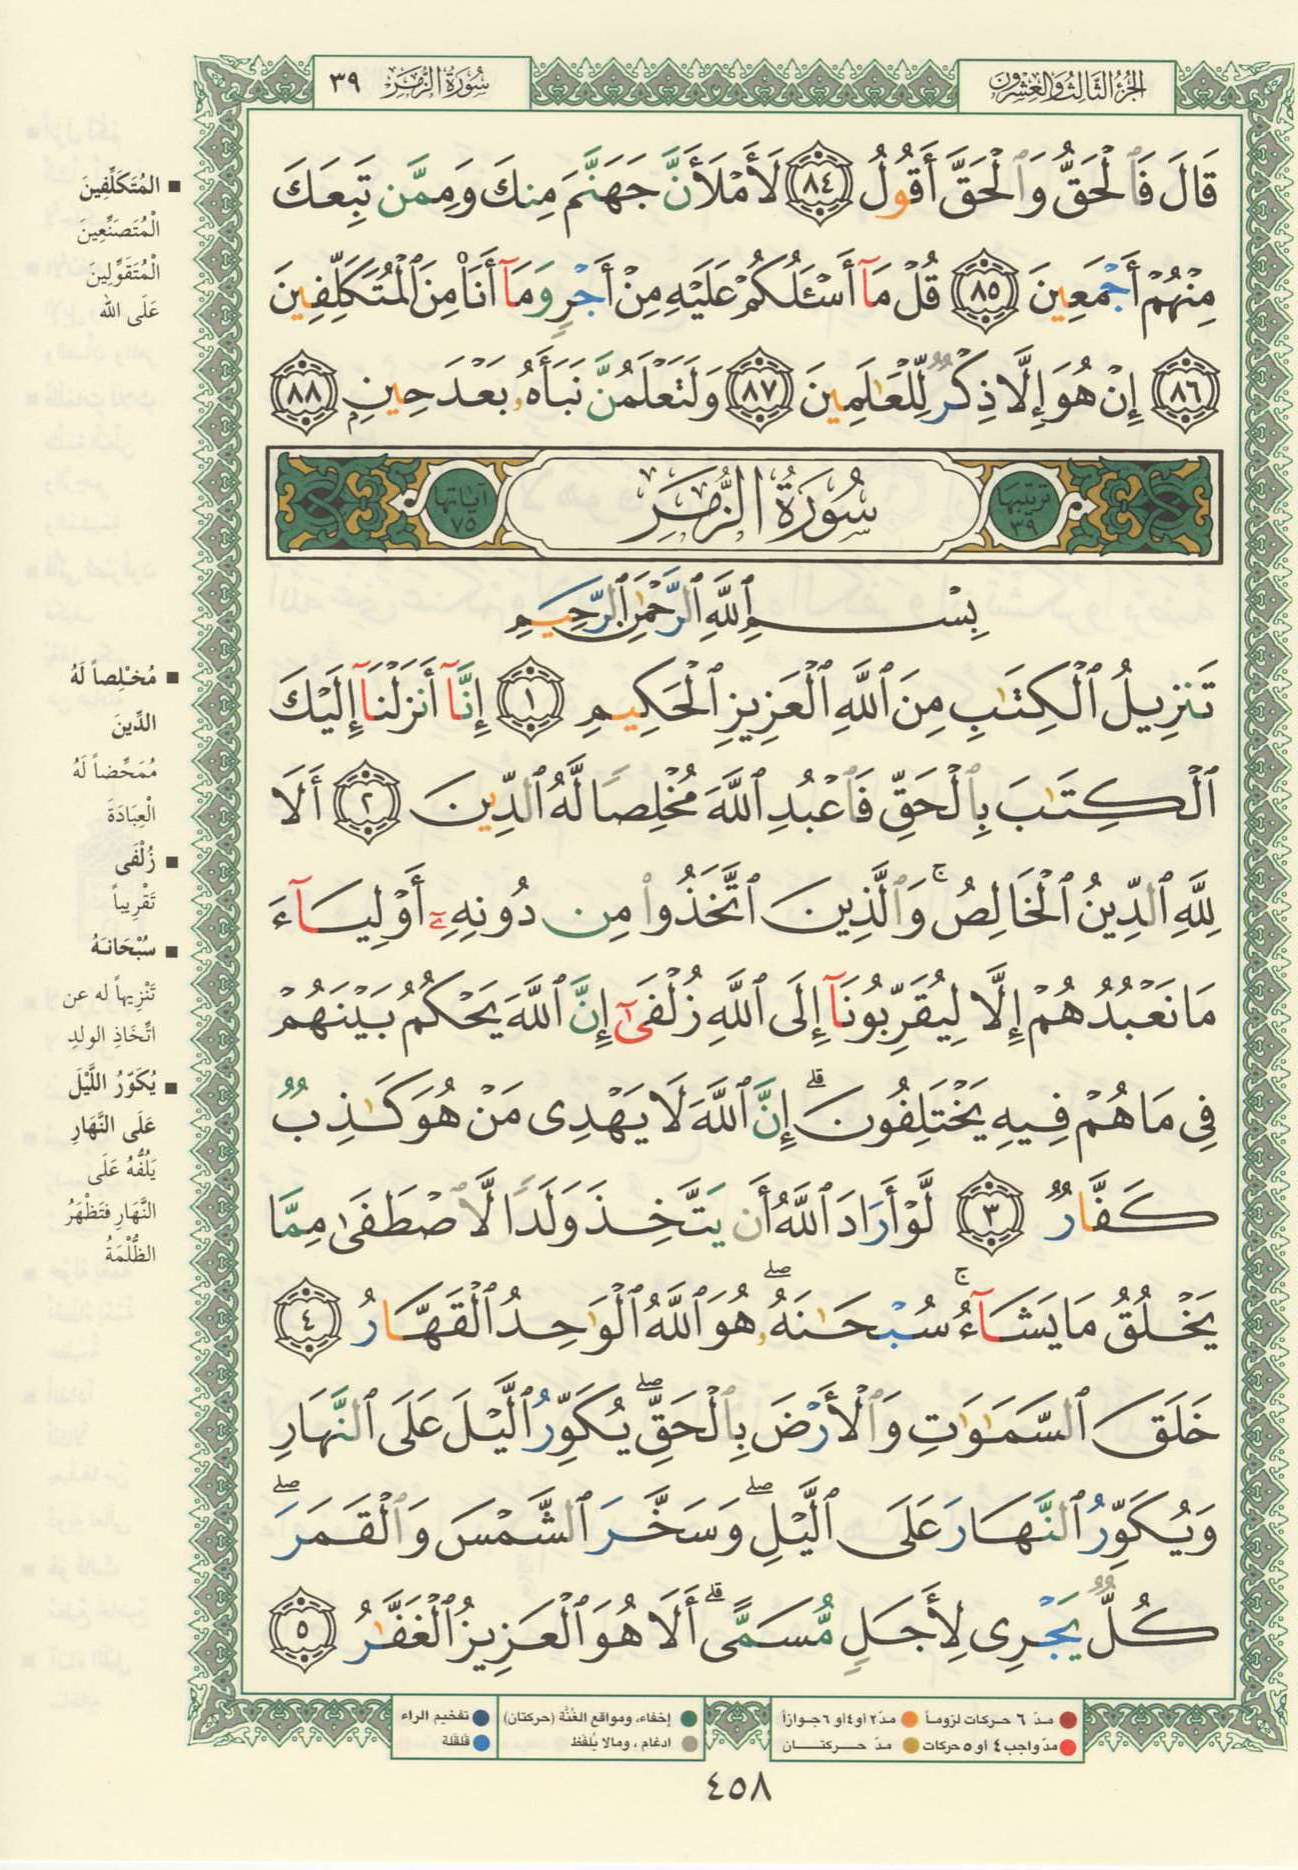 الجزء الثالث والعشرون
سورة الزمر ٣٩
قَالَ فَٱلْحَقُّ وَٱلْحَقَّ أَقُولُ ٨٤ لَأَمْلَأَنَّ جَهَنَّمَ مِنكَ وَمِمَّن تَبِعَكَ
مِنْهُمْ أَجْمَعِينَ ٨٥ قُلْ مَآ أَسْـَٔلُكُمْ عَلَيْهِ مِنْ أَجْرٍ وَمَآ أَنَا۠ مِنَ ٱلْمُتَكَلِّفِينَ
٨٦ إِنْ هُوَ إِلَّا ذِكْرٌ لِّلْعَٰلَمِينَ ٨٧ وَلَتَعْلَمُنَّ نَبَأَهُۥ بَعْدَ حِينٍۭ ٨٨
ترتيبها ٣٩ سُورَةُ الزُّمَرِ آياتها ٧٥
بِسْمِ ٱللَّهِ ٱلرَّحْمَٰنِ ٱلرَّحِيمِ
تَنزِيلُ ٱلْكِتَٰبِ مِنَ ٱللَّهِ ٱلْعَزِيزِ ٱلْحَكِيمِ ١ إِنَّآ أَنزَلْنَآ إِلَيْكَ
ٱلْكِتَٰبَ بِٱلْحَقِّ فَٱعْبُدِ ٱللَّهَ مُخْلِصًا لَّهُ ٱلدِّينَ ٢ أَلَا
لِلَّهِ ٱلدِّينُ ٱلْخَالِصُ ۚ وَٱلَّذِينَ ٱتَّخَذُوا۟ مِن دُونِهِۦٓ أَوْلِيَآءَ
مَا نَعْبُدُهُمْ إِلَّا لِيُقَرِّبُونَآ إِلَى ٱللَّهِ زُلْفَىٰٓ إِنَّ ٱللَّهَ يَحْكُمُ بَيْنَهُمْ
فِى مَا هُمْ فِيهِ يَخْتَلِفُونَ ۗ إِنَّ ٱللَّهَ لَا يَهْدِى مَنْ هُوَ كَٰذِبٌ
كَفَّارٌ ٣ لَّوْ أَرَادَ ٱللَّهُ أَن يَتَّخِذَ وَلَدًا لَّٱصْطَفَىٰ مِمَّا
يَخْلُقُ مَا يَشَآءُ ۚ سُبْحَٰنَهُۥ ۖ هُوَ ٱللَّهُ ٱلْوَٰحِدُ ٱلْقَهَّارُ ٤
خَلَقَ ٱلسَّمَٰوَٰتِ وَٱلْأَرْضَ بِٱلْحَقِّ ۖ يُكَوِّرُ ٱلَّيْلَ عَلَى ٱلنَّهَارِ
وَيُكَوِّرُ ٱلنَّهَارَ عَلَى ٱلَّيْلِ ۖ وَسَخَّرَ ٱلشَّمْسَ وَٱلْقَمَرَ ۖ
كُلٌّ يَجْرِى لِأَجَلٍ مُّسَمًّى ۗ أَلَا هُوَ ٱلْعَزِيزُ ٱلْغَفَّٰرُ ٥
■ المُتَكَلِّفِينَ
الْمُتَصَنِّعِينَ
الْمُتَقَوِّلِينَ
عَلَى الله
■ مُخْلِصاً لَهُ
الدِّينَ
مُمَحِّضاً لَهُ
الْعِبَادَةَ
■ زُلْفَى
تَقْرِيباً
■ سُبْحَانَهُ
تَنْزِيهاً له عن
اتِّخَاذِ الولدِ
■ يُكَوِّرُ اللَّيْلَ
عَلَى النَّهَارِ
يَلُفُّهُ عَلَى
النَّهَارِ فتَظْهَرُ
الظُّلْمَةُ
مدّ ٦ حركات لزوماً مدّ ٢ أو ٤ أو ٦ جوازاً إخفاء، ومواقع الغُنَّة (حركتان) تفخيم الراء
مدّ واجب ٤ أو ٥ حركات مدّ حركتان ادغام ، ومالا يُلفَظ قلقلة
٤٥٨